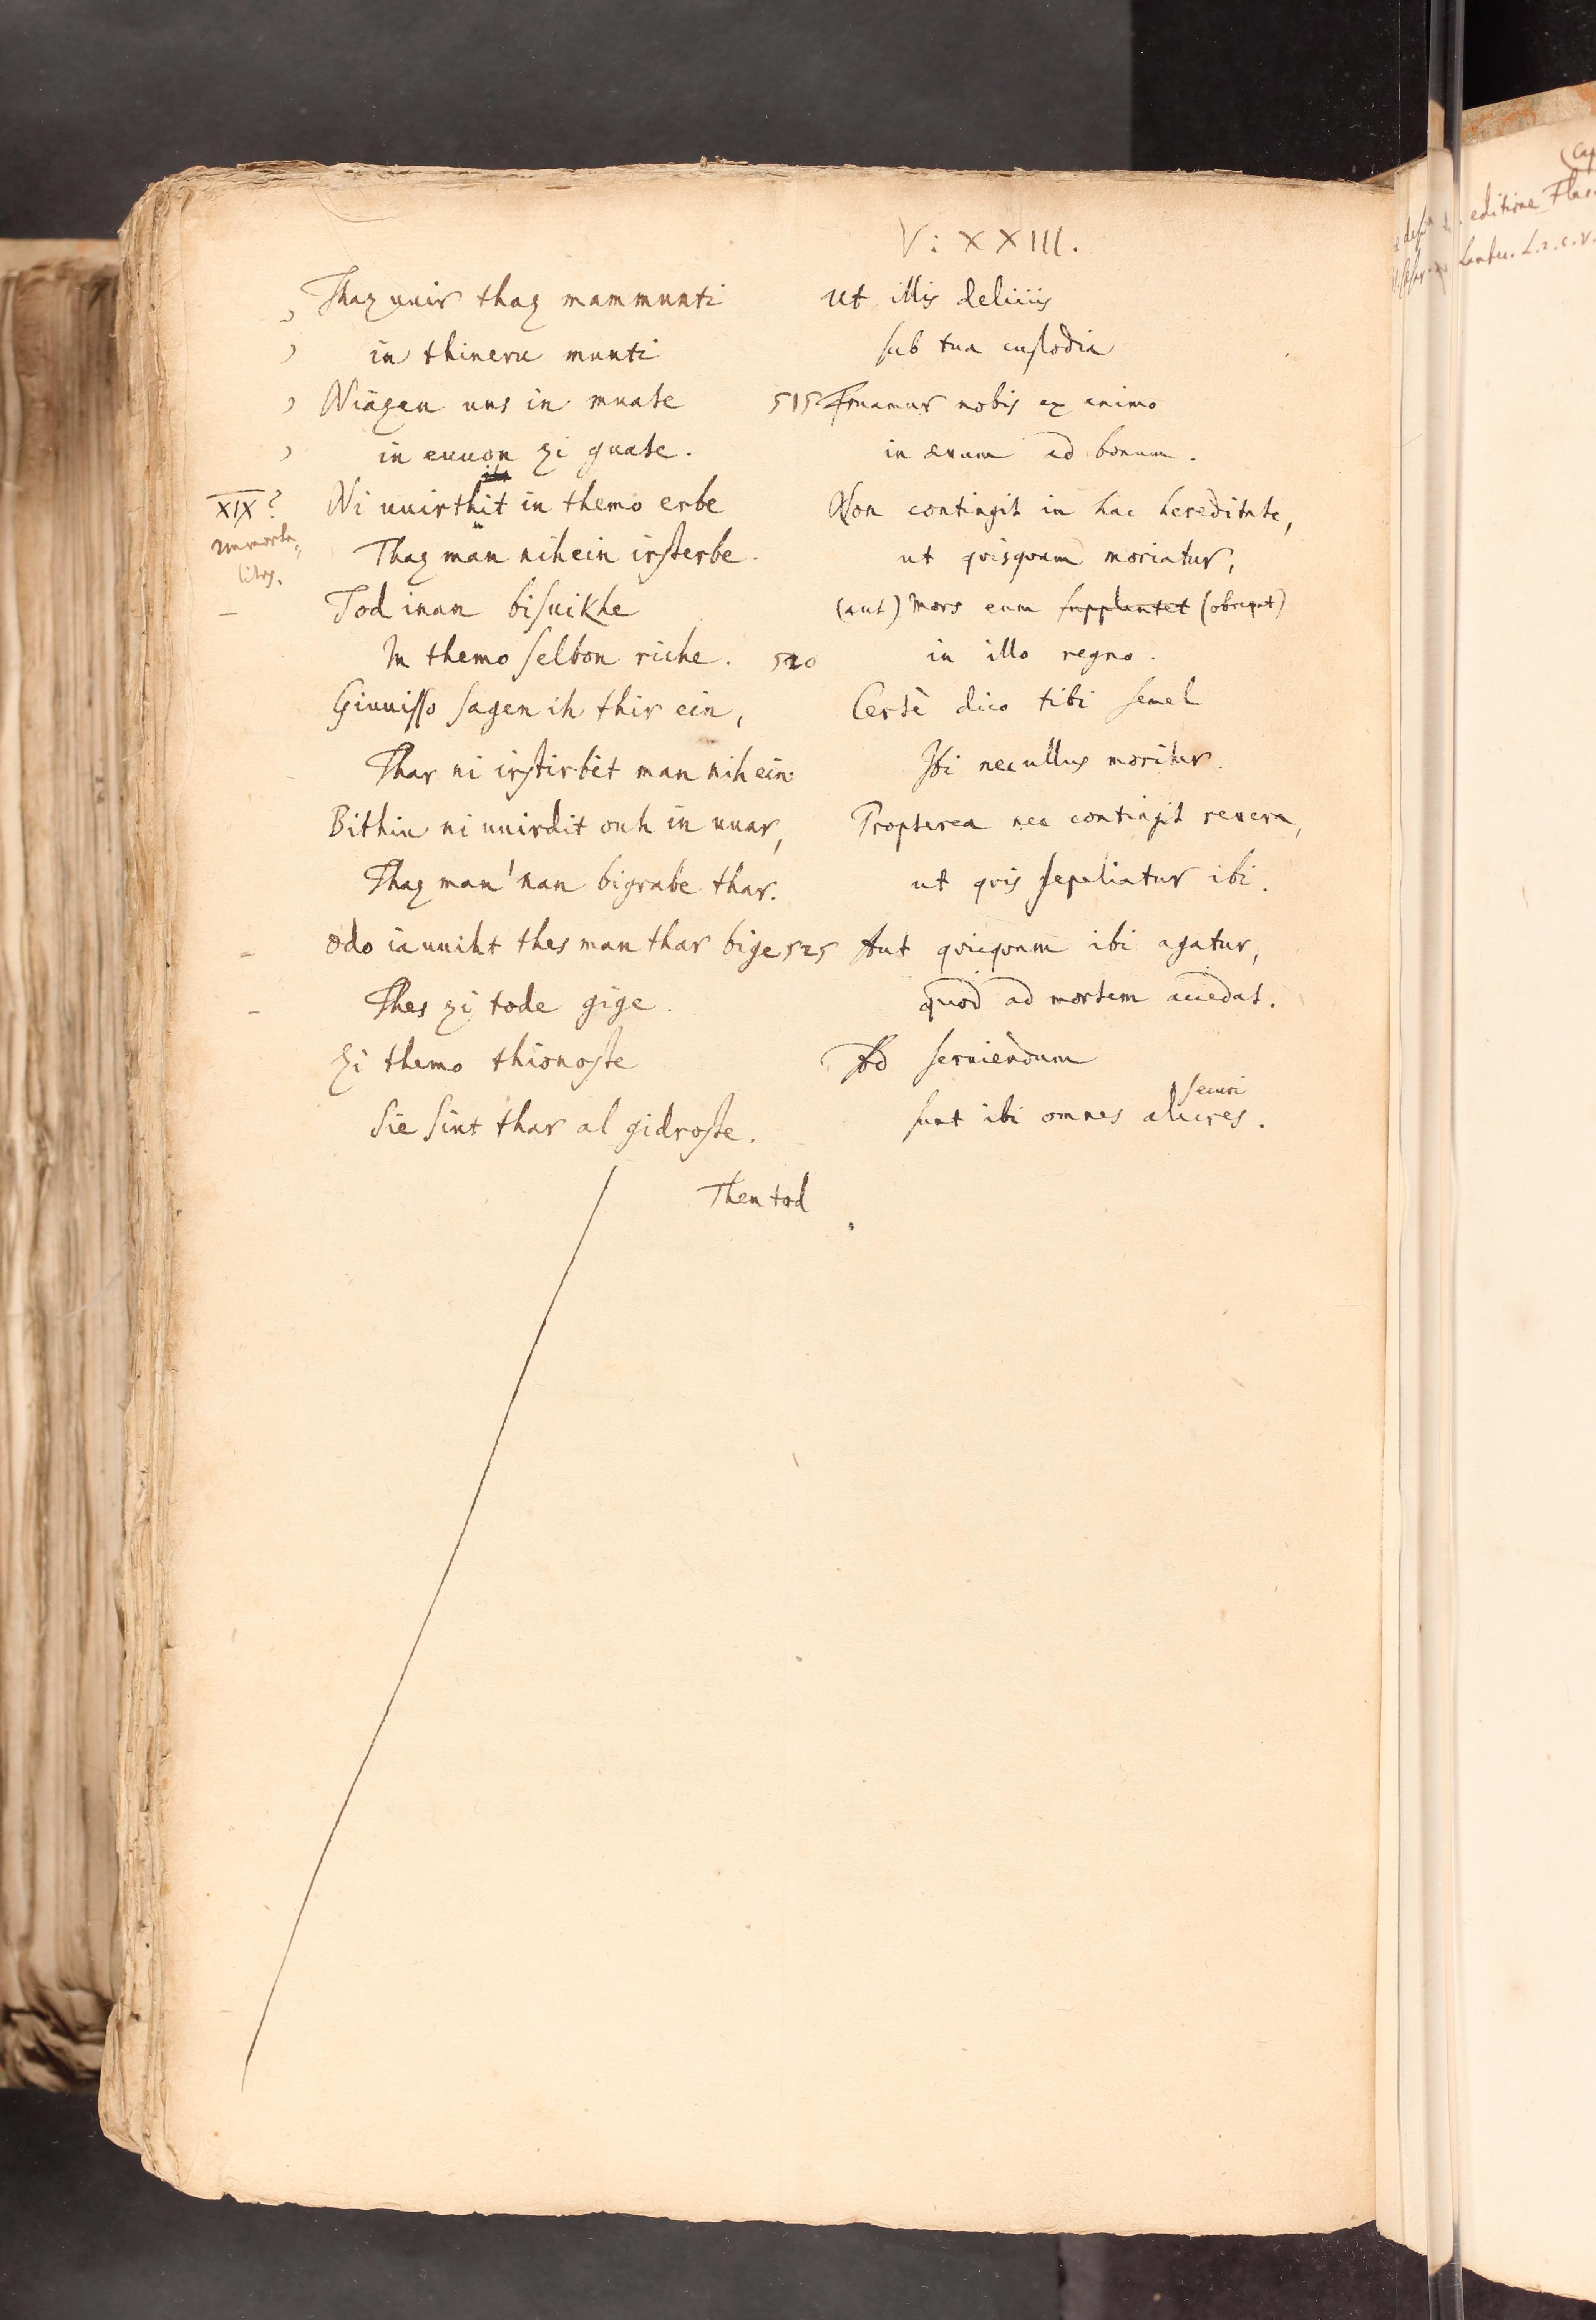 V: XXIII.
Thaz uuir thaz mammunti
in thineru munti
Niazen uns in muate
in euuon zi guate.
XIX?
Immorta-
litas.
Ni uuirthit in themo erbe
Thaz man nihein irsterbe.
Tod inan bisuikhe
In themo selbon riche.
Giuuisso sagen ih thir ein,
Thar ni irstirbit man nihein.
Bithiu ni uuirdit ouh in uuar,
Thaz man'nan bigrabe thar.
Odo iauuiht thes man thar bige
Thes zi tode gige.
Zi themo thionoste
Sie sint thar al gidroste.
Ut illis deliciis
sub tua custodia
515 Fruamur nobis ex animo
in ævum ad bonum.
Non contingit in hac hereditate,
ut quisquam moriatur,
(aut) Mors eum supplantet (obruat)
520 in illo regno.
Certè dico tibi semel
Ibi nec ullus moritur.
Propterea nec contingit revera,
ut quis sepeliatur ibi.
525 Aut quicquam ibi agatur,
quod ad mortem accedat.
Ad serviendum
securi
sunt ibi omnes alacres.
Then tod
editione